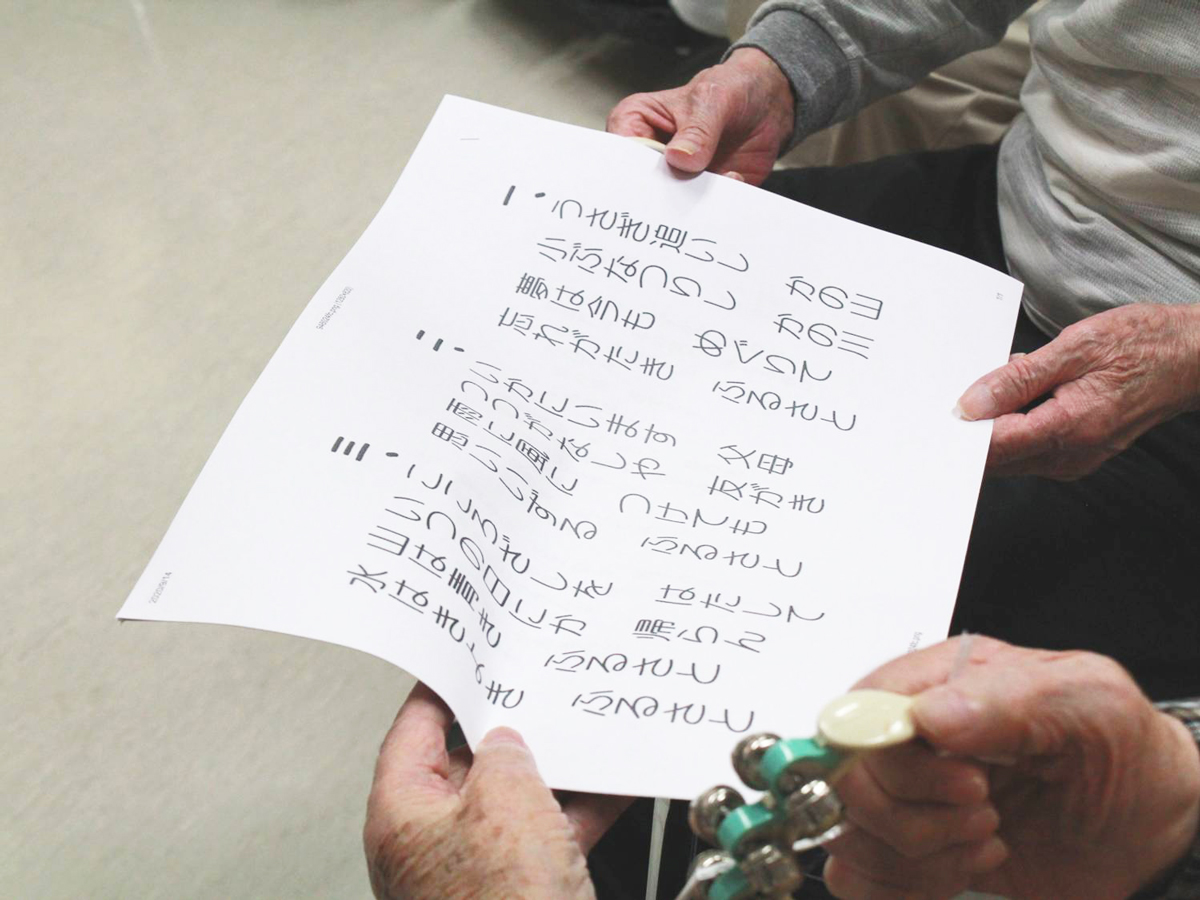 一・うさぎ追いし かの山
小ぶなつりし かの川
夢は今も めぐりて
忘れがたき ふるさと
二・いかにいます 父母
つつがなしや 友がき
雨に風に つけても
思いいずる ふるさと
三・こころざしを はたして
いつの日にか 帰らん
山は青き ふるさと
水はきよき ふるさと